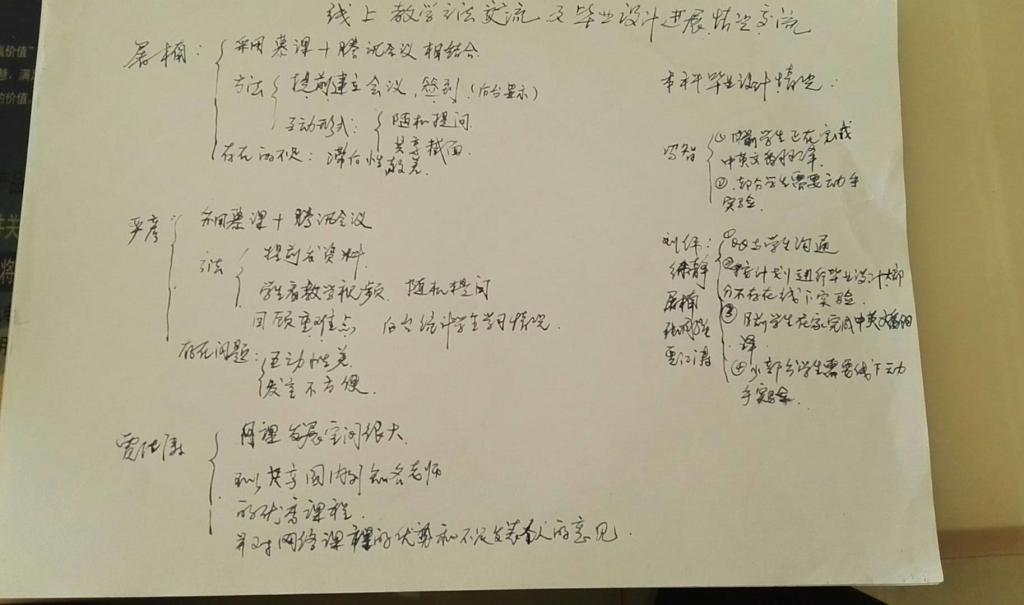 线上教学方法交流及毕业设计进展情况交流
屠楠：
采用慕课+腾讯会议相结合
方法
提前建立会议，签到（后台显示）
互动形式：
随机提问
共享截面
存在的不足：滞后性
较差
严彦
采用慕课+腾讯会议
方法
提前发资料
学生看教学视频 随机提问
回顾重难点 后台统计学生学习情况
存在问题：
互动性差
发言不方便
网课发展空间很大
可以共享国内外知名老师
的优秀课程
并对网络课程的优势和不足发表个人的意见.
本科毕业设计情况：
冯智
①目前学生正在完成
中英文翻译
②部分学生需要动手
实验
刘伟：
屠楠
①
与学生沟通
②按计划进行毕业设计大部
分不存在线下实验
③目前学生在家完成中英文翻
译
④少部分学生需要线下动
手实验
价值”
的价值